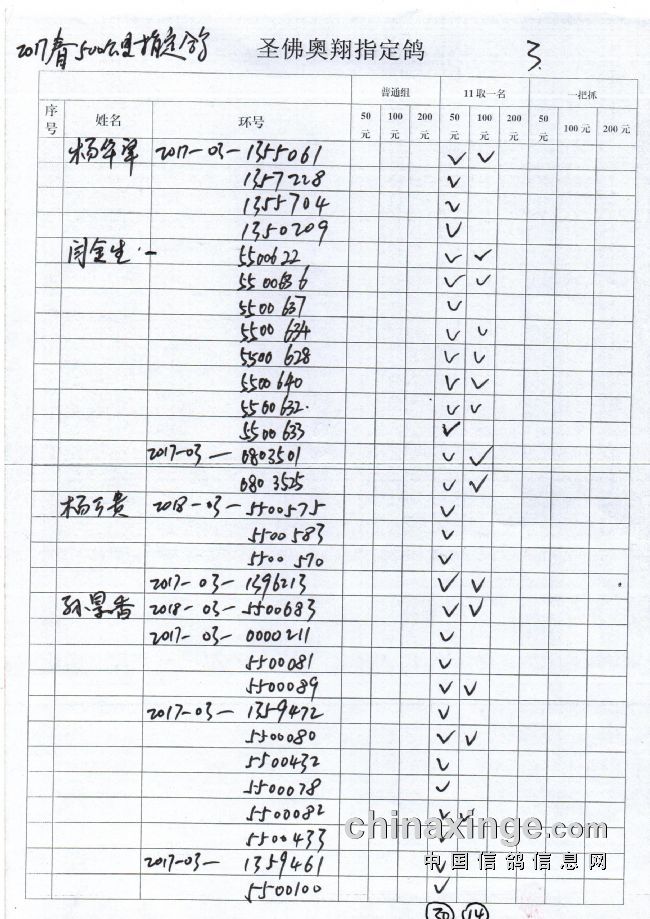 2017春500公里指定鸽 圣佛奥翔指定鸽 3
普通组 11取一名 一把抓
序号 姓名 环号 50元 100元 200元 50元 100元 200元 50元 100元 200元
杨华翠 2017-03-1355061 ✓ ✓
1357228 ✓
1355704 ✓
1350209 ✓
闫金生 - 5500622 ✓ ✓
5500636 ✓ ✓
5500637 ✓
5500634 ✓ ✓
5500628 ✓ ✓
5500640 ✓ ✓
5500632 ✓ ✓
5500633 ✓
2017-03-0803501 ✓ ✓
0803525 ✓ ✓
2018-03-5500575 ✓
5500583 ✓
5500570 ✓
2017-03-1396213 ✓ ✓
2018-03-5500683 ✓ ✓
2017-03-0000211 ✓
5500081 ✓
5500089 ✓ ✓
2017-03-1359472 ✓
5500080 ✓ ✓
5500432 ✓
5500078 ✓
5500082 ✓ ✓
5500433 ✓
2017-03-1359461 ✓
5500100 ✓
30 14
chinaxinge.com
中国信鸽信息网